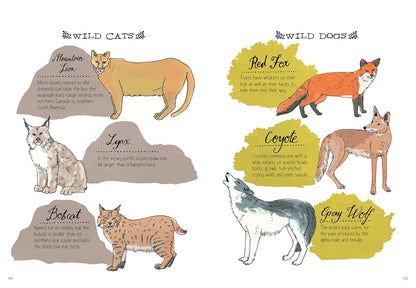 WILD CATS
Mountain
Lion
More closely related to the
domestic cat than the lion, the
mountain lion's range extends from
northern Canada to southern
South America.
Lynx
In the snowy north, a lynx's paw may
be larger than a human's hand.
Bobcat
Named for its stubby tail, the bobcat
is smaller than its
northern lynx cousin and lacks
the distinctive ear tufts.
WILD DOGS
Red Fox
Foxes have whiskers on their
legs as well as their faces, to
help them find their way.
Coyote
Coyotes communicate with a
wide variety of sounds: howls,
barks, growls, high-pitched
crying, wails, and even squeals.
Gray Wolf
The entire pack cares for
the pups produced by the
alpha male and female.